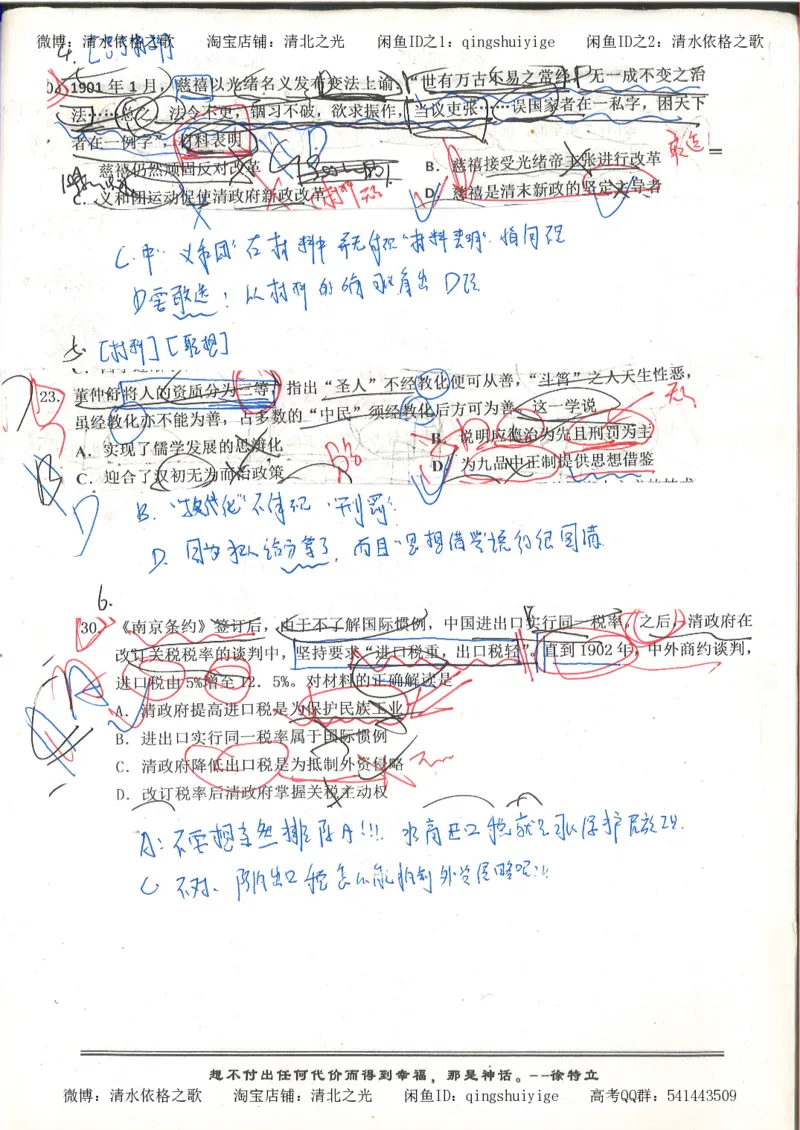 微博：清水依格之歌 淘宝店铺：清北之光 闲鱼ID之1：qingshuiyige 闲鱼ID之2：清水依格之歌
4. [材料]
1901年1月，慈禧以光绪名义发布变法上谕，“世有万古不易之常经，无一成不变之治
法……总之，法令不更，锢习不破，欲求振作，当议更张……误国家者在一私字，困天下
者在一例字”，材料表明
慈禧仍然顽固反对改革 B．慈禧接受光绪帝主张进行改革 敢选！
C．义和团运动促使清政府新政改革 材料无 D．慈禧是清末新政的坚定主导者
C.中“义和团”在材料中并无体现“材料表明”.
D需敢选！从材料的
5. [材料][联想]
23．董仲舒将人的资质分为三等，指出“圣人”不经教化便可从善，“斗筲”之人天生性恶，
虽经教化亦不能为善，占多数的“中民”须经教化后方可为善。这一学说 无
A．实现了儒学发展的思辨化 B．说明应德治为先且刑罚为主
C．迎合了汉初无为而治政策 D．为九品中正制提供思想借鉴
B. “教化”不体现“刑罚”.
D. 因为把人给分等了，而且“思想借鉴”说的很圆滑.
6.
30．《南京条约》签订后，由于不了解国际惯例，中国进出口实行同一税率。之后，清政府在
改订关税税率的谈判中，坚持要求“进口税重，出口税轻”。直到1902年，中外商约谈判，
进口税由5%增至12．5%。对材料的正确解读是
A．清政府提高进口税是为保护民族工业
B．进出口实行同一税率属于国际惯例
C．清政府降低出口税是为抵制外资侵略 无
D．改订税率后清政府掌握关税主动权
A：不要想当然排除A!!! 提高进口税就可以保护民族工业.
C 不对、降低出口税怎么能抵制外资侵略呢!!!
想不付出任何代价而得到幸福，那是神话。--徐特立
微博：清水依格之歌 淘宝店铺：清北之光 闲鱼ID：qingshuiyige 高考QQ群：541443509